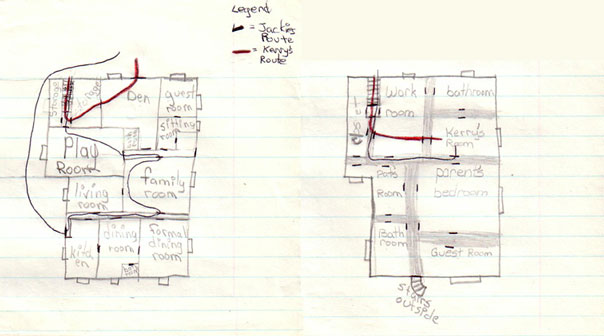 Legend
= Jackie's
Route
= Kerry's
Route
Storage
Den
guest
room
sitting
room
Play
Room
living
room
family
room
kitch
en
dining
room
formal
dining
room
closet
Work
room
bathroom
Kerry's
Room
Pat's
Room
parent's
bedroom
Bath
room
Guest Room
stairs
outside